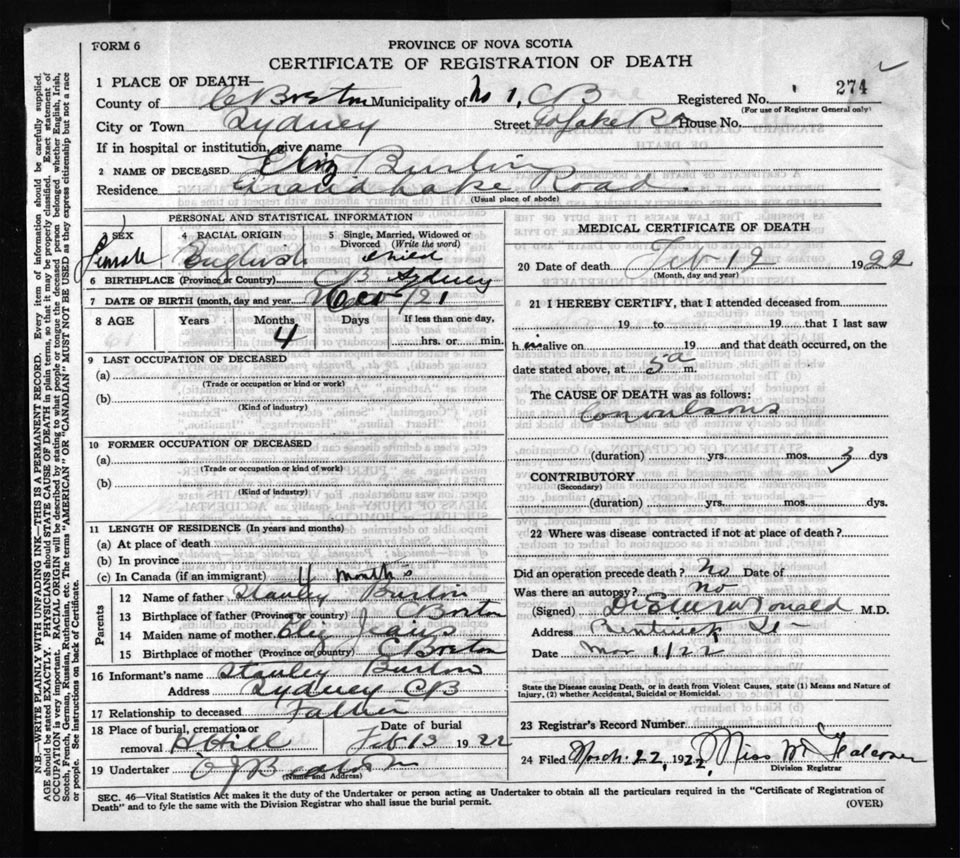 FORM 6
PROVINCE OF NOVA SCOTIA
CERTIFICATE OF REGISTRATION OF DEATH
274
1 PLACE OF DEATH—
County of C Breton Municipality of No 1, CB Registered No.
(For use of Registrar General only)
City or Town Sydney Street House No.
If in hospital or institution, give name
2 NAME OF DECEASED
Residence Grand Lake Road
(Usual place of abode)
PERSONAL AND STATISTICAL INFORMATION
3 SEX 4 RACIAL ORIGIN 5 Single, Married, Widowed or Divorced (Write the word)
Female English Child
6 BIRTHPLACE (Province or Country) CB Sydney
7 DATE OF BIRTH (month, day and year) /21
8 AGE Years Months Days If less than one day,
4 hrs. or min.
9 LAST OCCUPATION OF DECEASED
(a)
(Trade or occupation or kind of work)
(b)
(Kind of industry)
10 FORMER OCCUPATION OF DECEASED
(a)
(Trade or occupation or kind of work)
(b)
(Kind of industry)
11 LENGTH OF RESIDENCE (In years and months)
(a) At place of death
(b) In province
(c) In Canada (if an immigrant) 4 months
Parents
12 Name of father Stanley
13 Birthplace of father (Province or country) C Breton
14 Maiden name of mother
15 Birthplace of mother (Province or country) C Breton
16 Informant's name Stanley
Address Sydney CB
17 Relationship to deceased Father
18 Place of burial, cremation or removal Date of burial
H Hill Feb 13 1922
19 Undertaker
(Name and Address)
MEDICAL CERTIFICATE OF DEATH
20 Date of death Feb 12 1922
(Month, day and year)
21 I HEREBY CERTIFY, that I attended deceased from
19 to 19 that I last saw
h alive on 19 and that death occurred, on the
date stated above, at 5 a m.
The CAUSE OF DEATH was as follows:
Convulsions
(duration) yrs. mos. 3 dys
CONTRIBUTORY
(Secondary)
(duration) yrs. mos. dys.
22 Where was disease contracted if not at place of death?
Did an operation precede death? No Date of
Was there an autopsy? No
(Signed) M.D.
Address
Date Mar 1/22
State the Disease causing Death, or in death from Violent Causes, state (1) Means and Nature
of Injury, (2) whether Accidental, Suicidal or Homicidal.
23 Registrar's Record Number
24 Filed March 22, 1922, Miss M
Division Registrar
SEC. 46—Vital Statistics Act makes it the duty of the Undertaker or person acting as Undertaker to obtain all the particulars required in the "Certificate of Registration of
Death" and to fyle the same with the Division Registrar who shall issue the burial permit.
(OVER)
N.B.—WRITE PLAINLY WITH UNFADING INK—THIS IS A PERMANENT RECORD. Every item of information should be carefully supplied.
AGE should be stated EXACTLY. PHYSICIANS should STATE CAUSE OF DEATH in plain terms, so that it may be properly classified. Exact statement of
OCCUPATION is very important. RACIAL ORIGIN will be described by stating to what people or tongue the deceased person belonged whether English, Irish,
Scotch, French, German, Russian, Ruthenian, etc. The terms "AMERICAN" OR "CANADIAN" MUST NOT BE USED as they express citizenship but not a race
or people. See instructions on back of Certificate.